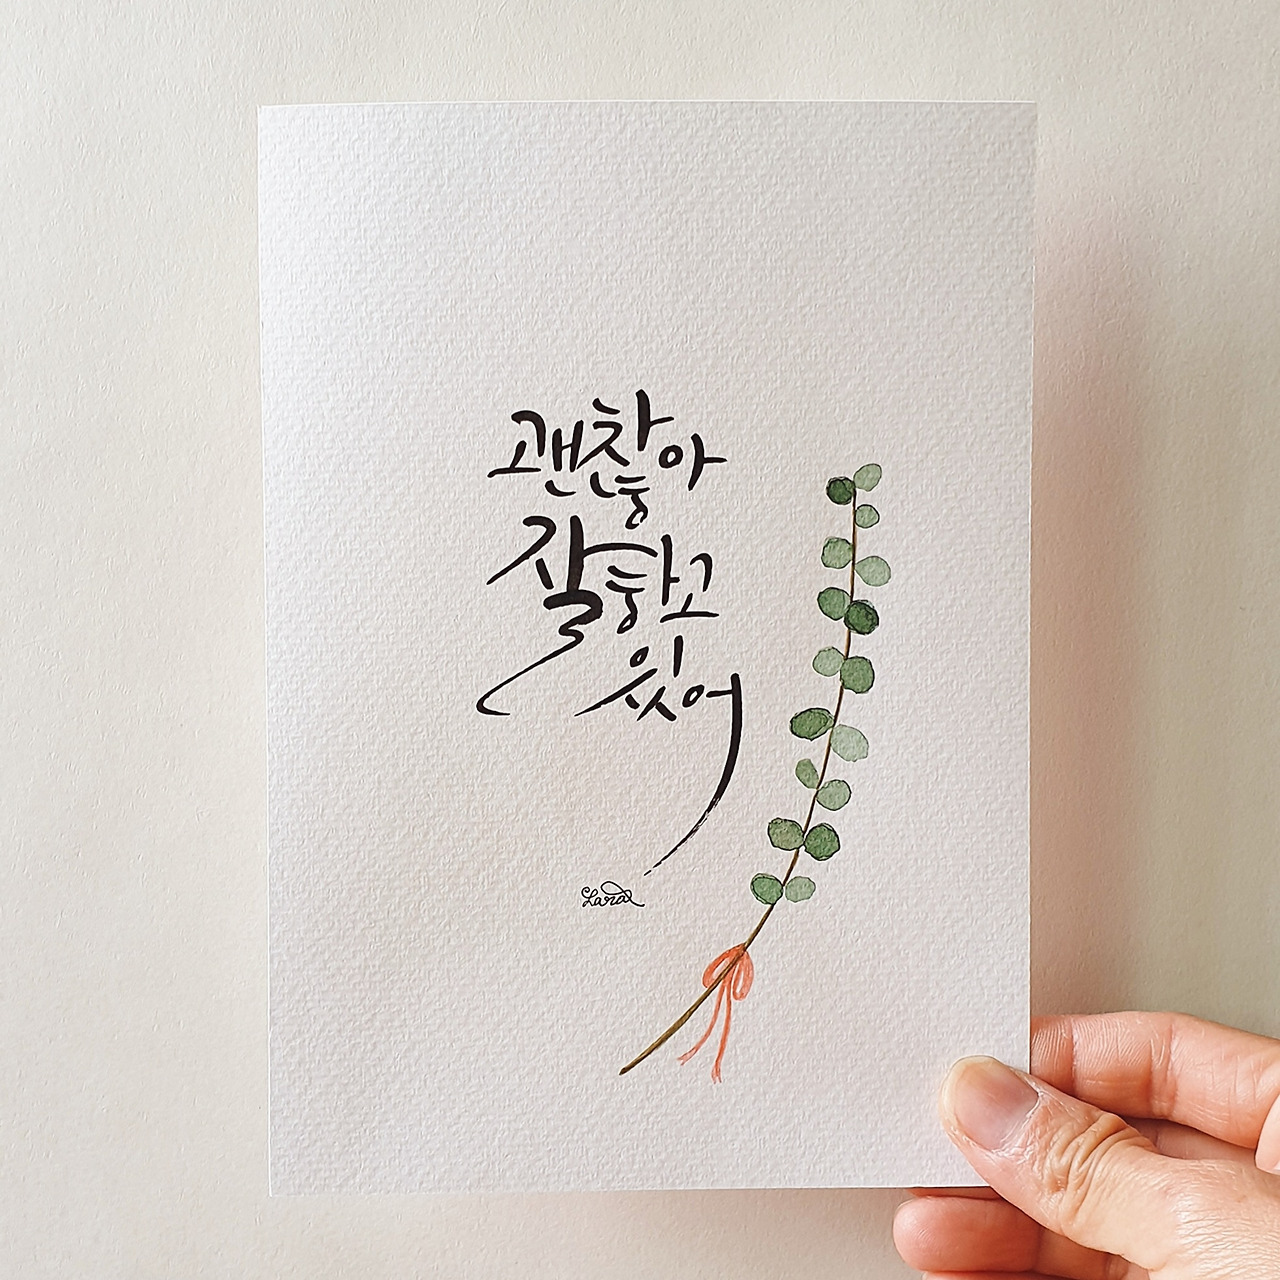 괜찮아
잘하고
있어
Lara